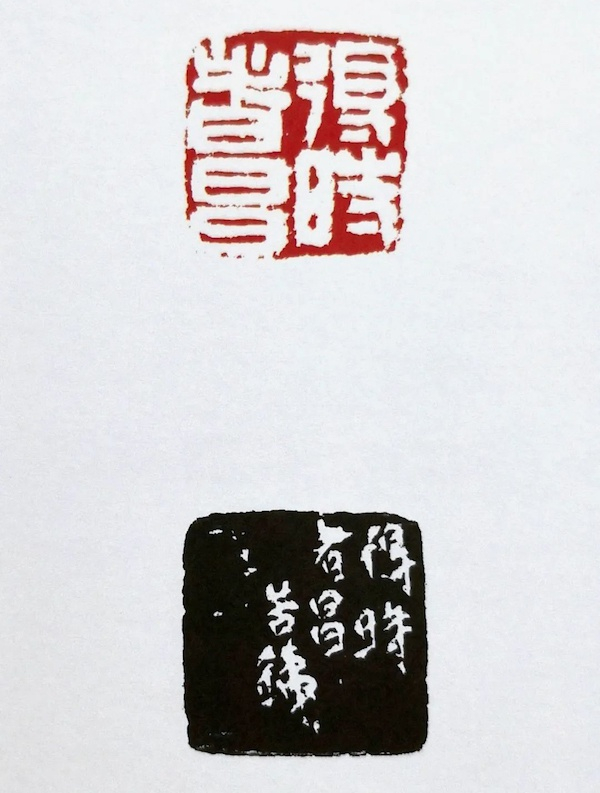 得時
者昌
得時
者昌
苦鐵